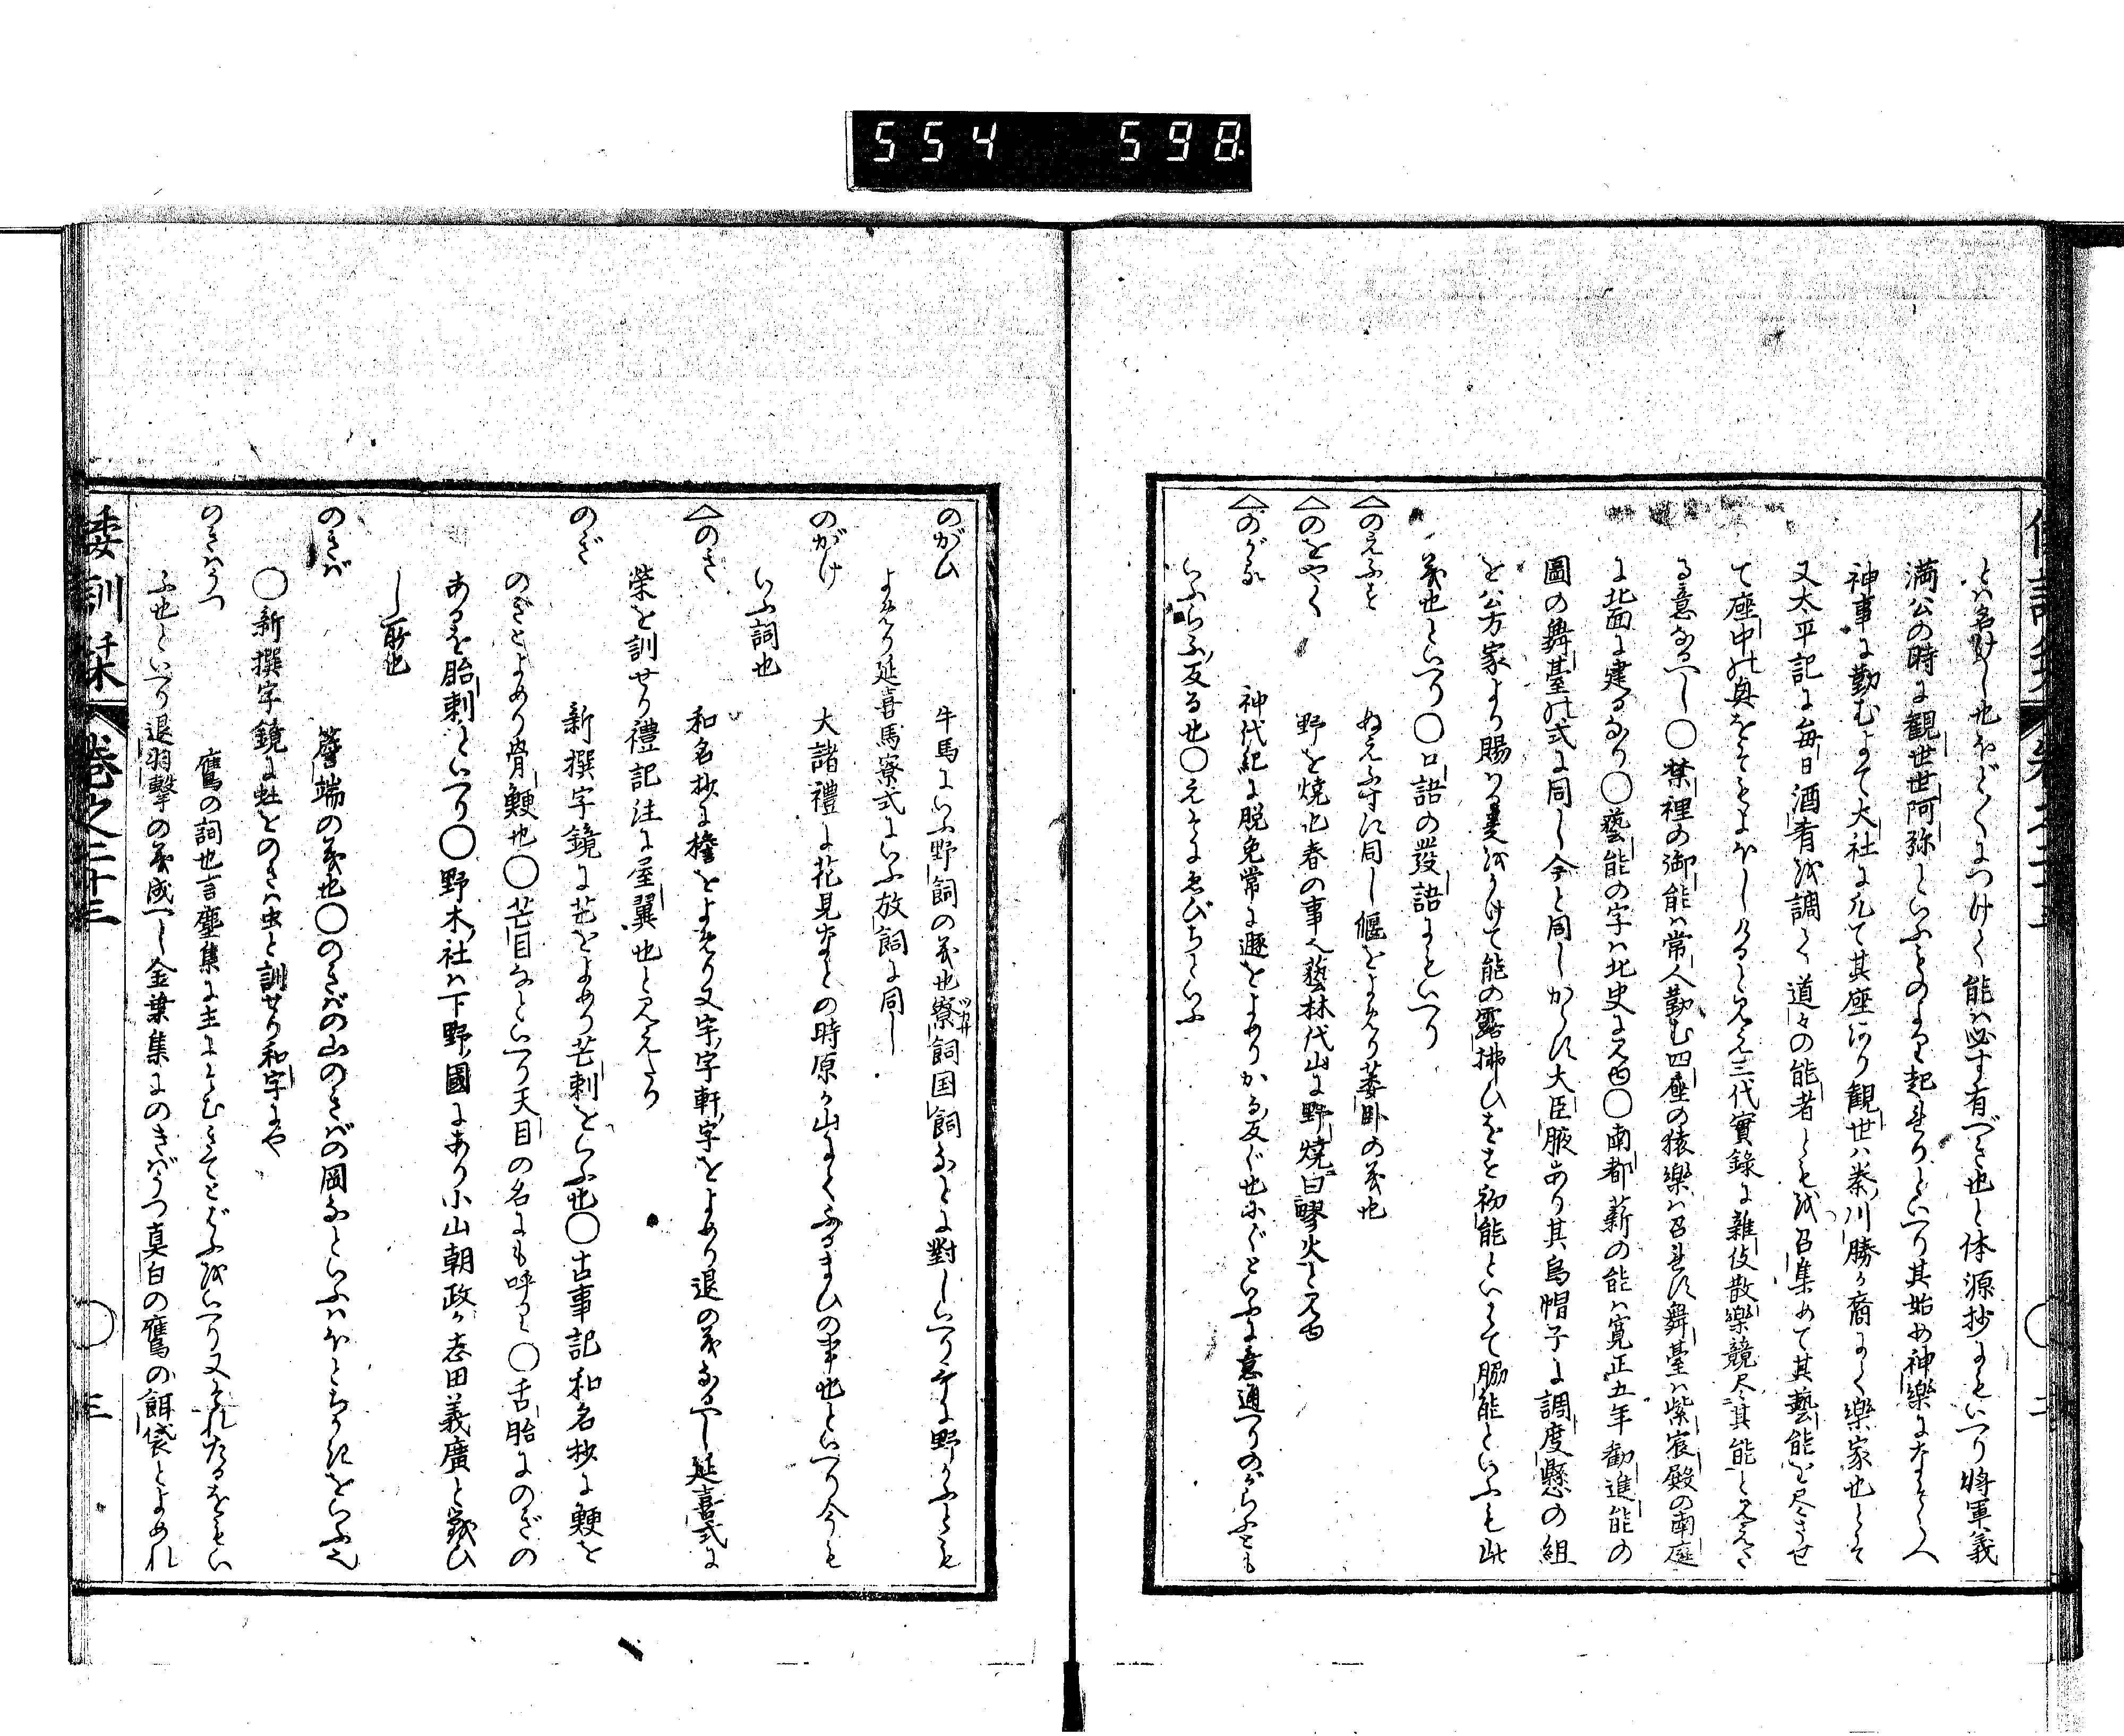 554 598
とハ名けし也ほど〳〵につけて能ハ必す有べき也と体源抄にもいへり将軍義
満公の時に観世世阿弥といふものより起れりといへり其始め神樂になそらへ
神事に勤むよて大社に凡て其座あり観世ハ秦ノ川勝か裔にて樂家也とそ
又太平記に毎日酒肴を調へ道々の能者ともを召集めて其藝能を尽させ
て座中の興をそもよほしけると見え三代實錄に雜伎散樂競尽其能と見えた
る意なるへし〇禁裡の御能ハ常人勤む四座の猿樂ハ召れす舞臺ハ紫宸殿の南庭
に北面に建るなり〇藝能の字ハ北史に見ゆ〇南都薪の能ハ寛正五年勸進能の
圖の舞臺の式に同し今と同しからす大臣腋あり其烏帽子に調度懸の組
を公方家より賜ハる是をかけて能の露拂ひをを初能といはて脇能といふも此
義也といへり〇口語の發語にもいへり
△のえふす　ぬえふすに同し偃をよめり萎臥の義也
△のをやく　野を燒也春の事也藝林代山に野燒曰謬火と見ゆ
△のがる　神代紀に脱免常に遯をよめりかる反ぐ也にぐといふに意通へりのがらふとも
いふらふ反る也〇えそにゑびちといふ
倭訓栞 卷之二十三 〇 二
のがひ　牛馬にいふ野飼の義也寮飼国飼なとに對しいへり哥に野かふとも
よめり延喜馬寮式にいふ放飼に同し
のがけ　大諸禮に花見なとの時原か山にてふるまひの事也といへり今も
いふ詞也
△のき　和名抄に檐をよめり又宇ノ字軒ノ字をよめり退の義なるへし延喜式に
榮を訓せり禮記注に屋翼也と見えたり
のぎ　新撰字鏡に芒をよめり芒刺をいふ也〇古事記和名抄に鯁を
のぎとよめり骨鯁也〇芒目なといへり天目の名にも呼り〇舌胎にのぎの
あるを胎刺といへり〇野木ノ社ハ下野ノ國にあり小山朝政か志田義廣と戰ひ
し所也
のきば　簷端の義也〇のきばの山のきばの岡なといふハほとちかきをいふ也
〇新撰字鏡に虹をのきハ虫と訓せり和字にや
のきはうつ　鷹の詞也言塵集に主にそむきてとぶふをいへり又それたるをもい
ふ也といへり退羽擊の義成へし金葉集にのきばうつ真白の鷹の餌袋とよめれ
倭訓栞 卷之二十三 〇 三